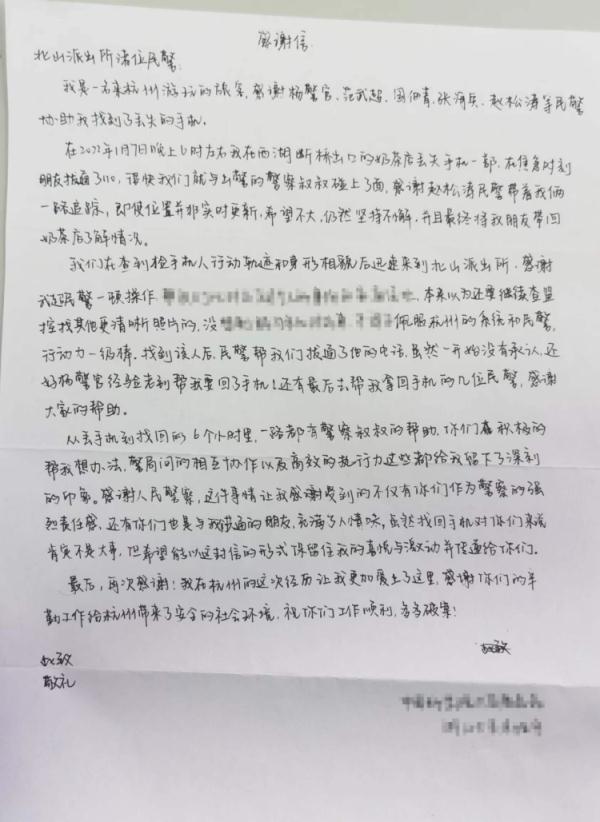 感谢信
北山派出所诸位民警
我是一名来杭州游玩的旅客，感谢杨警官、范武超、周佃青、张海兵、赵松涛等民警
协助我找到了丢失的手机。
在2022年1月7日晚上6时左右我在西湖断桥出口的奶茶店丢失手机一部，在焦急时刻
朋友拨通了110，很快我们就与出警的警察叔叔碰上了面，感谢赵松涛民警带着我俩
一路追踪，即便位置并非实时更新，希望不大，仍然坚持不懈，并且最终将我朋友带回
奶茶店了解情况。
我们在查到捡手机人行动轨迹和身形相貌后迅速来到北山派出所，感谢
民警一顿操作 本来以为还要继续查监
控找其他更清晰照片的，没 佩服杭州的系统和民警，
行动力一级棒。找到该人后，民警帮我们拨通了他的电话，虽然一开始没有承认，还
好杨警官经验老到帮我要回了手机！还有最后去帮我拿回手机的几位民警，感谢
大家的帮助。
从丢手机到找回的6个小时里，一路都有警察叔叔的帮助，你们在积极的
帮我想办法，警局间的相互协作以及高效的执行力这些都给我留下了深刻
的印象。感谢人民警察，这件事情让我感谢受到的不仅有你们作为警察的强
烈责任感，还有你们也是与我普通的朋友，充满了人情味，虽然找回手机对你们来说
肯定不是大事，但希望能以这封信的形式保留住我的喜悦与激动并传递给你们。
最后，再次感谢！我在杭州的这次经历让我更加爱上了这里，感谢你们的辛
勤工作给杭州带来了安全的社会环境，祝你们工作顺利，多多破案！
此致
敬礼